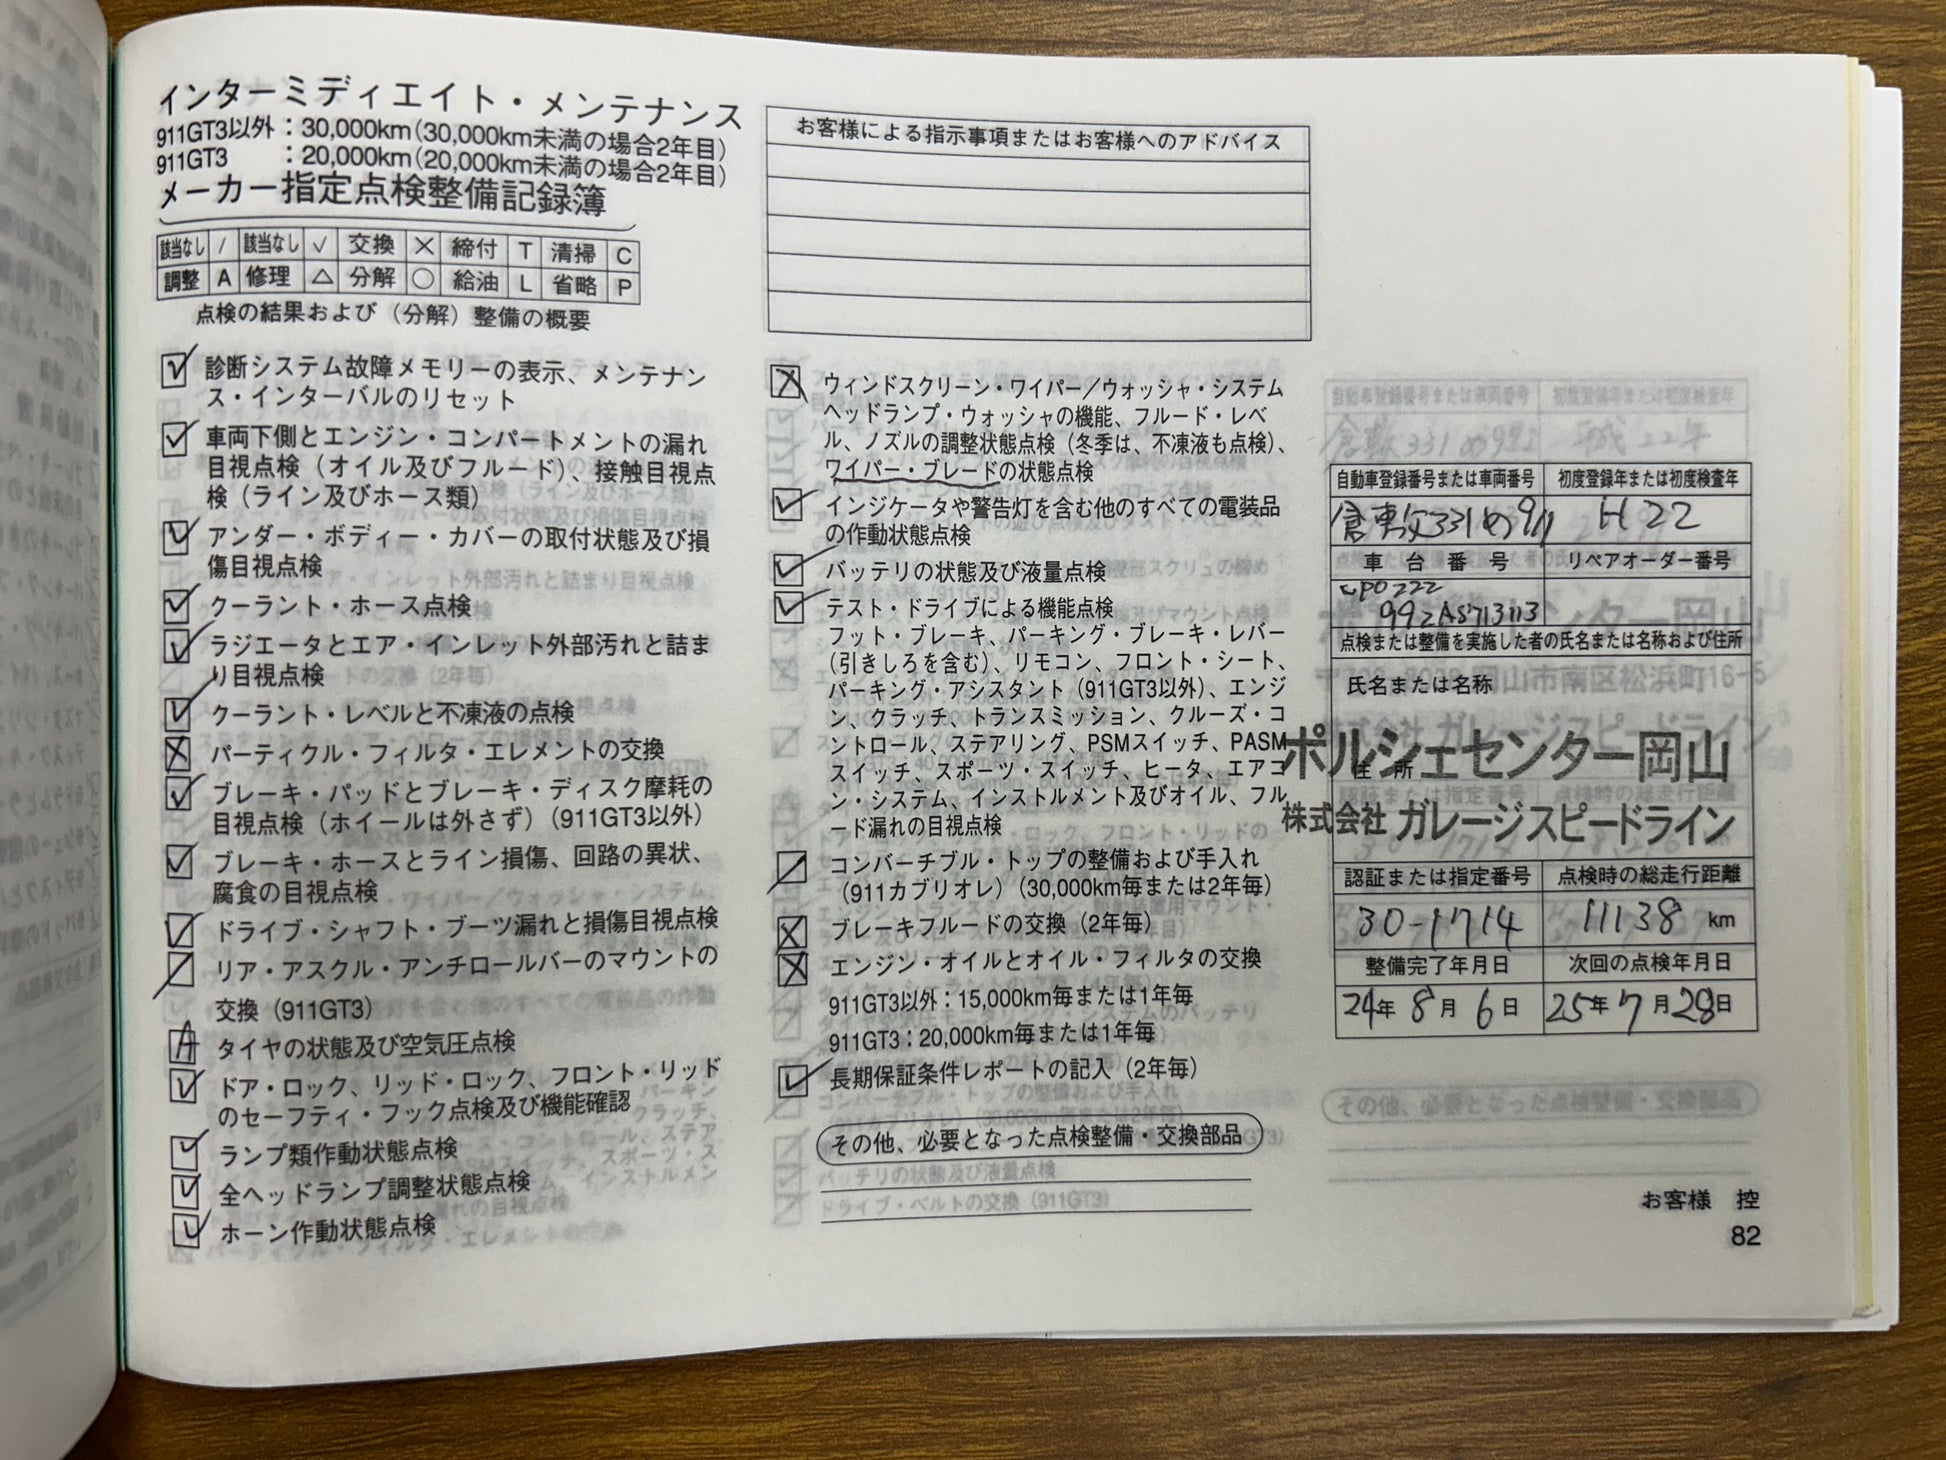 インターミディエイト・メンテナンス
911GT3以外：30,000km（30,000km未満の場合2年目）
911GT3　　：20,000km（20,000km未満の場合2年目）
メーカー指定点検整備記録簿
該当なし / 該当なし √ 交換 × 締付 T 清掃 C
調整 A 修理 △ 分解 ○ 給油 L 省略 P
点検の結果および（分解）整備の概要
診断システム故障メモリーの表示、メンテナン
ス・インターバルのリセット
車両下側とエンジン・コンパートメントの漏れ
目視点検（オイル及びフルード）、接触目視点
検（ライン及びホース類）
アンダー・ボディー・カバーの取付状態及び損
傷目視点検
クーラント・ホース点検
ラジエータとエア・インレット外部汚れと詰ま
り目視点検
クーラント・レベルと不凍液の点検
パーティクル・フィルタ・エレメントの交換
ブレーキ・パッドとブレーキ・ディスク摩耗の
目視点検（ホイールは外さず）（911GT3以外）
ブレーキ・ホースとライン損傷、回路の異状、
腐食の目視点検
ドライブ・シャフト・ブーツ漏れと損傷目視点検
リア・アスクル・アンチロールバーのマウントの
交換（911GT3）
A タイヤの状態及び空気圧点検
ドア・ロック、リッド・ロック、フロント・リッド
のセーフティ・フック点検及び機能確認
ランプ類作動状態点検
全ヘッドランプ調整状態点検
ホーン作動状態点検
お客様による指示事項またはお客様へのアドバイス
ウィンドスクリーン・ワイパー／ウォッシャ・システム
ヘッドランプ・ウォッシャの機能、フルード・レベ
ル、ノズルの調整状態点検（冬季は、不凍液も点検）、
ワイパー・ブレードの状態点検
インジケータや警告灯を含む他のすべての電装品
の作動状態点検
バッテリの状態及び液量点検
テスト・ドライブによる機能点検
フット・ブレーキ、パーキング・ブレーキ・レバー
（引きしろを含む）、リモコン、フロント・シート、
パーキング・アシスタント（911GT3以外）、エンジ
ン、クラッチ、トランスミッション、クルーズ・コ
ントロール、ステアリング、PSMスイッチ、PASM
スイッチ、スポーツ・スイッチ、ヒータ、エアコ
ン・システム、インストルメント及びオイル、フル
ード漏れの目視点検
コンバーチブル・トップの整備および手入れ
（911カブリオレ）（30,000km毎または2年毎）
ブレーキフルードの交換（2年毎）
エンジン・オイルとオイル・フィルタの交換
911GT3以外：15,000km毎または1年毎
911GT3：20,000km毎または1年毎
長期保証条件レポートの記入（2年毎）
その他、必要となった点検整備・交換部品
自動車登録番号または車両番号 初度登録年または初度検査年
倉敷331め911 H22
車台番号 リペアオーダー番号
WP0ZZZ
99ZAS713113
点検または整備を実施した者の氏名または名称および住所
氏名または名称
ポルシェセンター岡山
住所
株式会社 ガレージスピードライン
認証または指定番号 点検時の総走行距離
30-1714 11138 km
整備完了年月日 次回の点検年月日
24年8月6日 25年7月28日
お客様　控
82